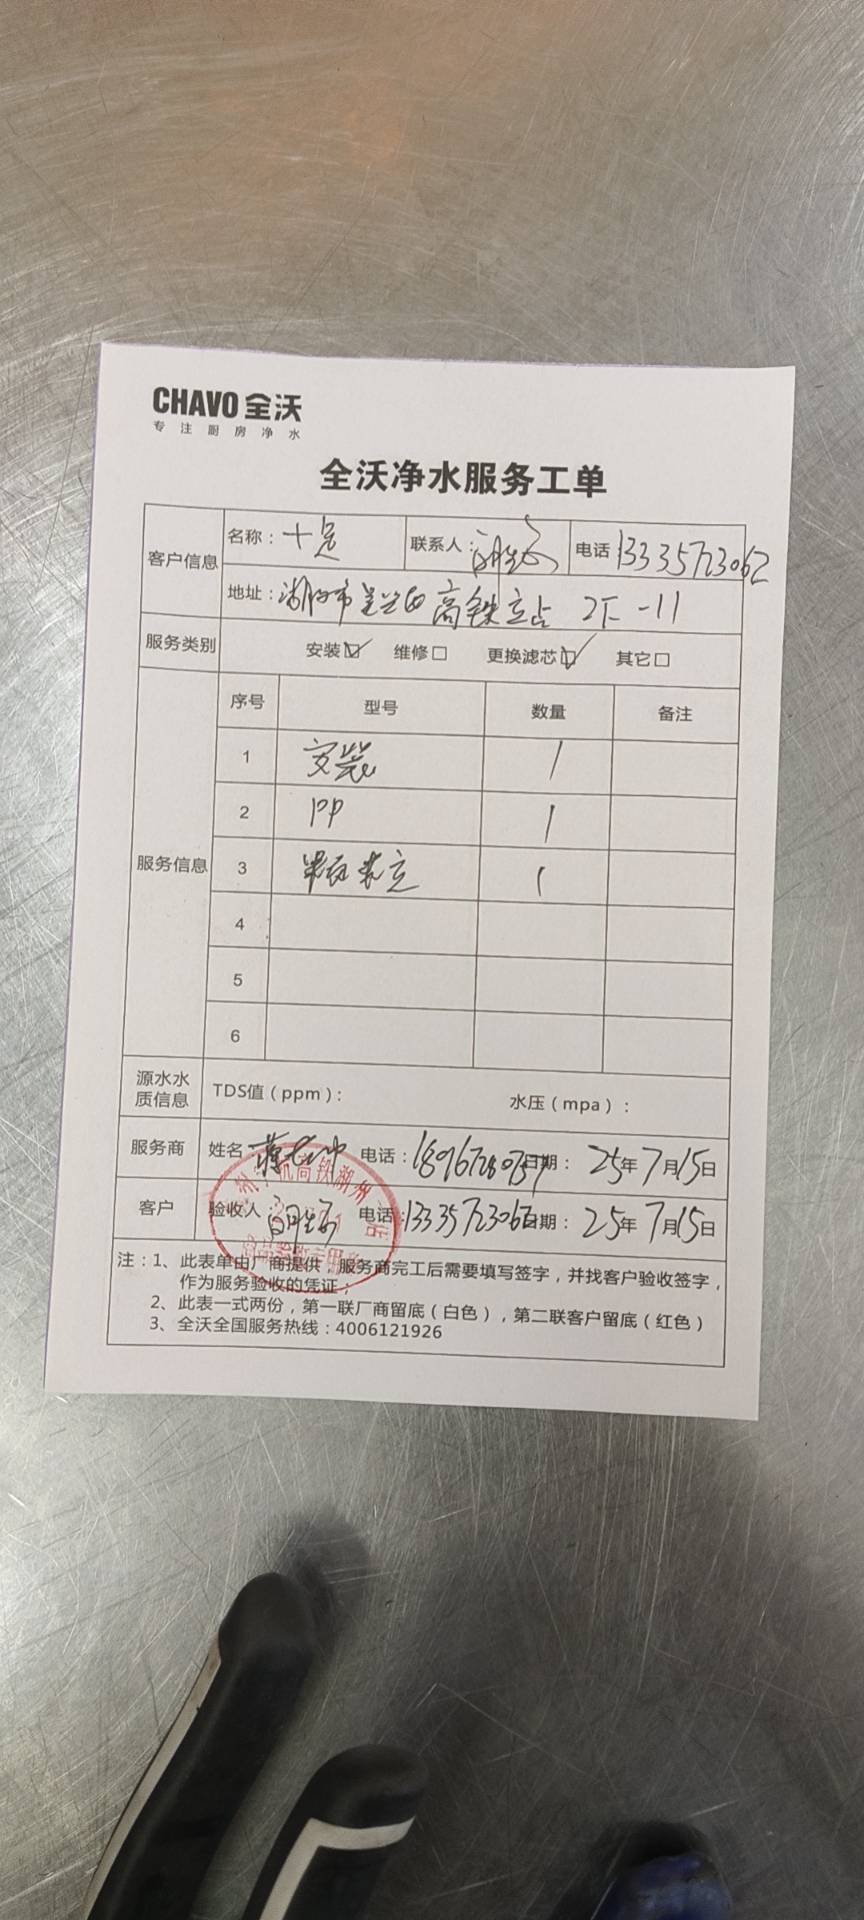 CHAVO 全沃
专注厨房净水
全沃净水服务工单
客户信息 名称： 联系人： 电话 13335723062
地址：湖州市吴兴区高铁站 2F-11
服务类别 安装☑ 维修□ 更换滤芯☑ 其它□
服务信息 序号 型号 数量 备注
1 安装 1
2 PP 1
3 1
4
5
6
源水水质信息 TDS值（ppm）： 水压（mpa）：
服务商 姓名 电话： 日期： 25年7月15日
客户 验收人 电话：13335723062 日期： 25年7月15日
注：1、此表单由厂商提供，服务商完工后需要填写签字，并找客户验收签字，
作为服务验收的凭证；
2、此表一式两份，第一联厂商留底（白色），第二联客户留底（红色）
3、全沃全国服务热线：4006121926